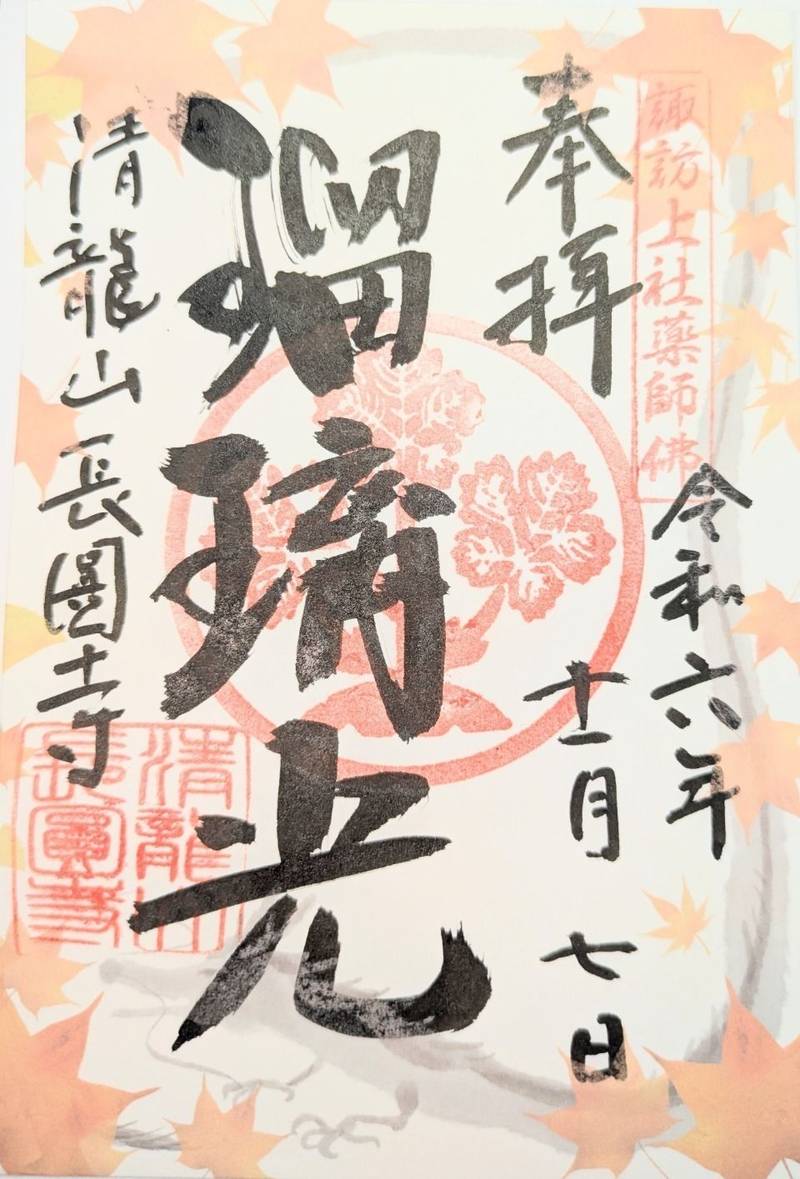 諏訪上社薬師佛
奉拝
令和六年
十一月 七日
瑠璃光
清龍山長圓寺
清龍山
長圓寺